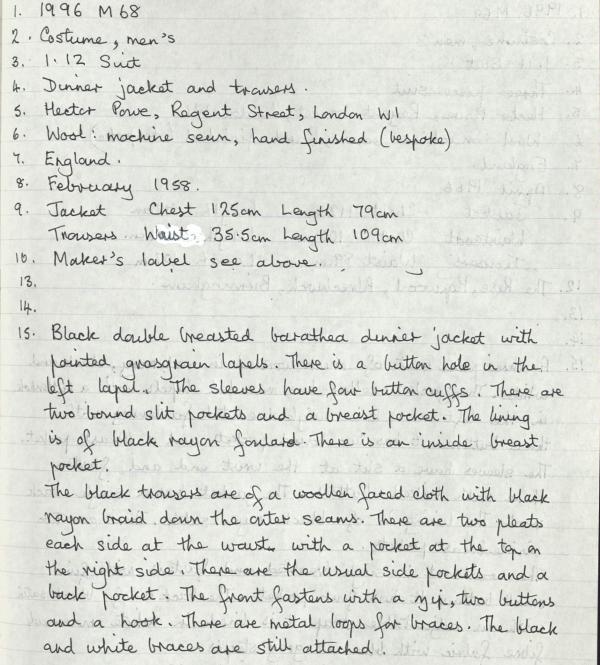 1. 1996 M 68
2. Costume, men's
3. 1.12 Suit
4. Dinner jacket and trousers.
5. Hector Powe, Regent Street, London W1
6. Wool: machine sewn, hand finished (bespoke)
7. England.
8. February 1958.
9. Jacket Chest 125cm Length 79cm
Trousers Waist 35.5cm Length 109cm
10. Maker's label see above.
13.
14.
15. Black double breasted barathea dinner jacket with
pointed, grosgrain lapels. There is a button hole in the
left lapel. The sleeves have four button cuffs. There are
two bound slit pockets and a breast pocket. The lining
is of black rayon foulard. There is an inside breast
pocket.
The black trousers are of a woollen faced cloth with black
rayon braid down the outer seams. There are two pleats
each side at the waist with a pocket at the top on
the right side. There are the usual side pockets and a
back pocket. The front fastens with a zip, two buttons
and a hook. There are metal loops for braces. The black
and white braces are still attached.